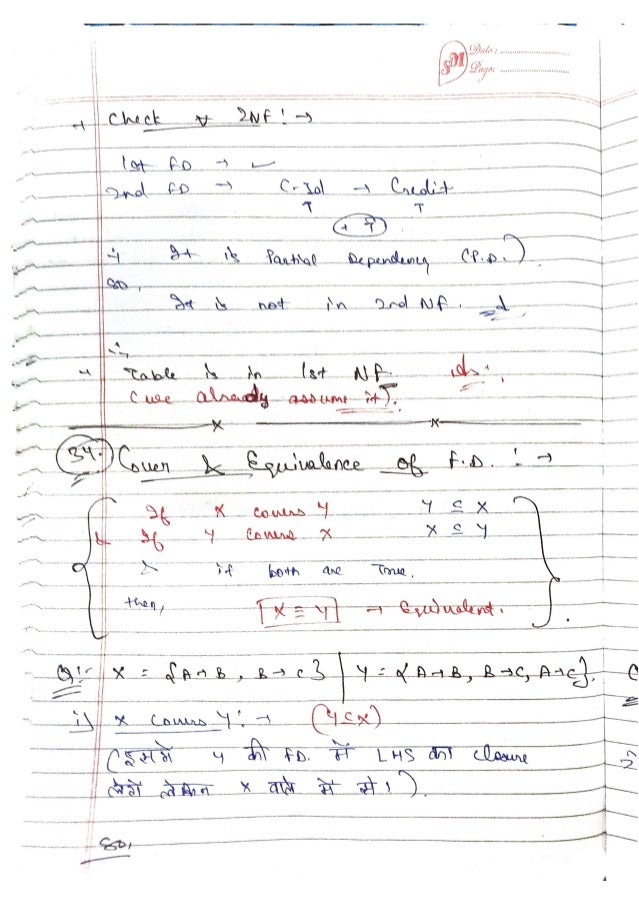 SM Date: ..............
Page: ..............
→ Check ∀ 2NF! →
1st FD → ✓
2nd FD → C-Id → Credit
→ It is Partial Dependency (P.D.)
so,
It is not in 2nd NF.
∴
→ Table is in 1st NF.
(we already assume it).
34. Cover & Equivalence of F.D. : →
If X covers Y Y ⊆ X
& If Y covers X X ⊆ Y
if both are True.
then, X ≡ Y → Equivalent.
Q:- X = {A→B, B→C} | Y = {A→B, B→C, A→C}.
i) X covers Y: → (Y⊆X)
(इसमे Y की FD. में LHS का closure
लेंगे लेकिन X वाले में से।).
So,